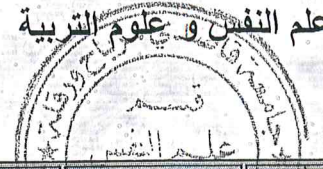 علم النفس و علوم التربية
جامعة قاصدي مرباح ورقلة
قسم
علم النفس